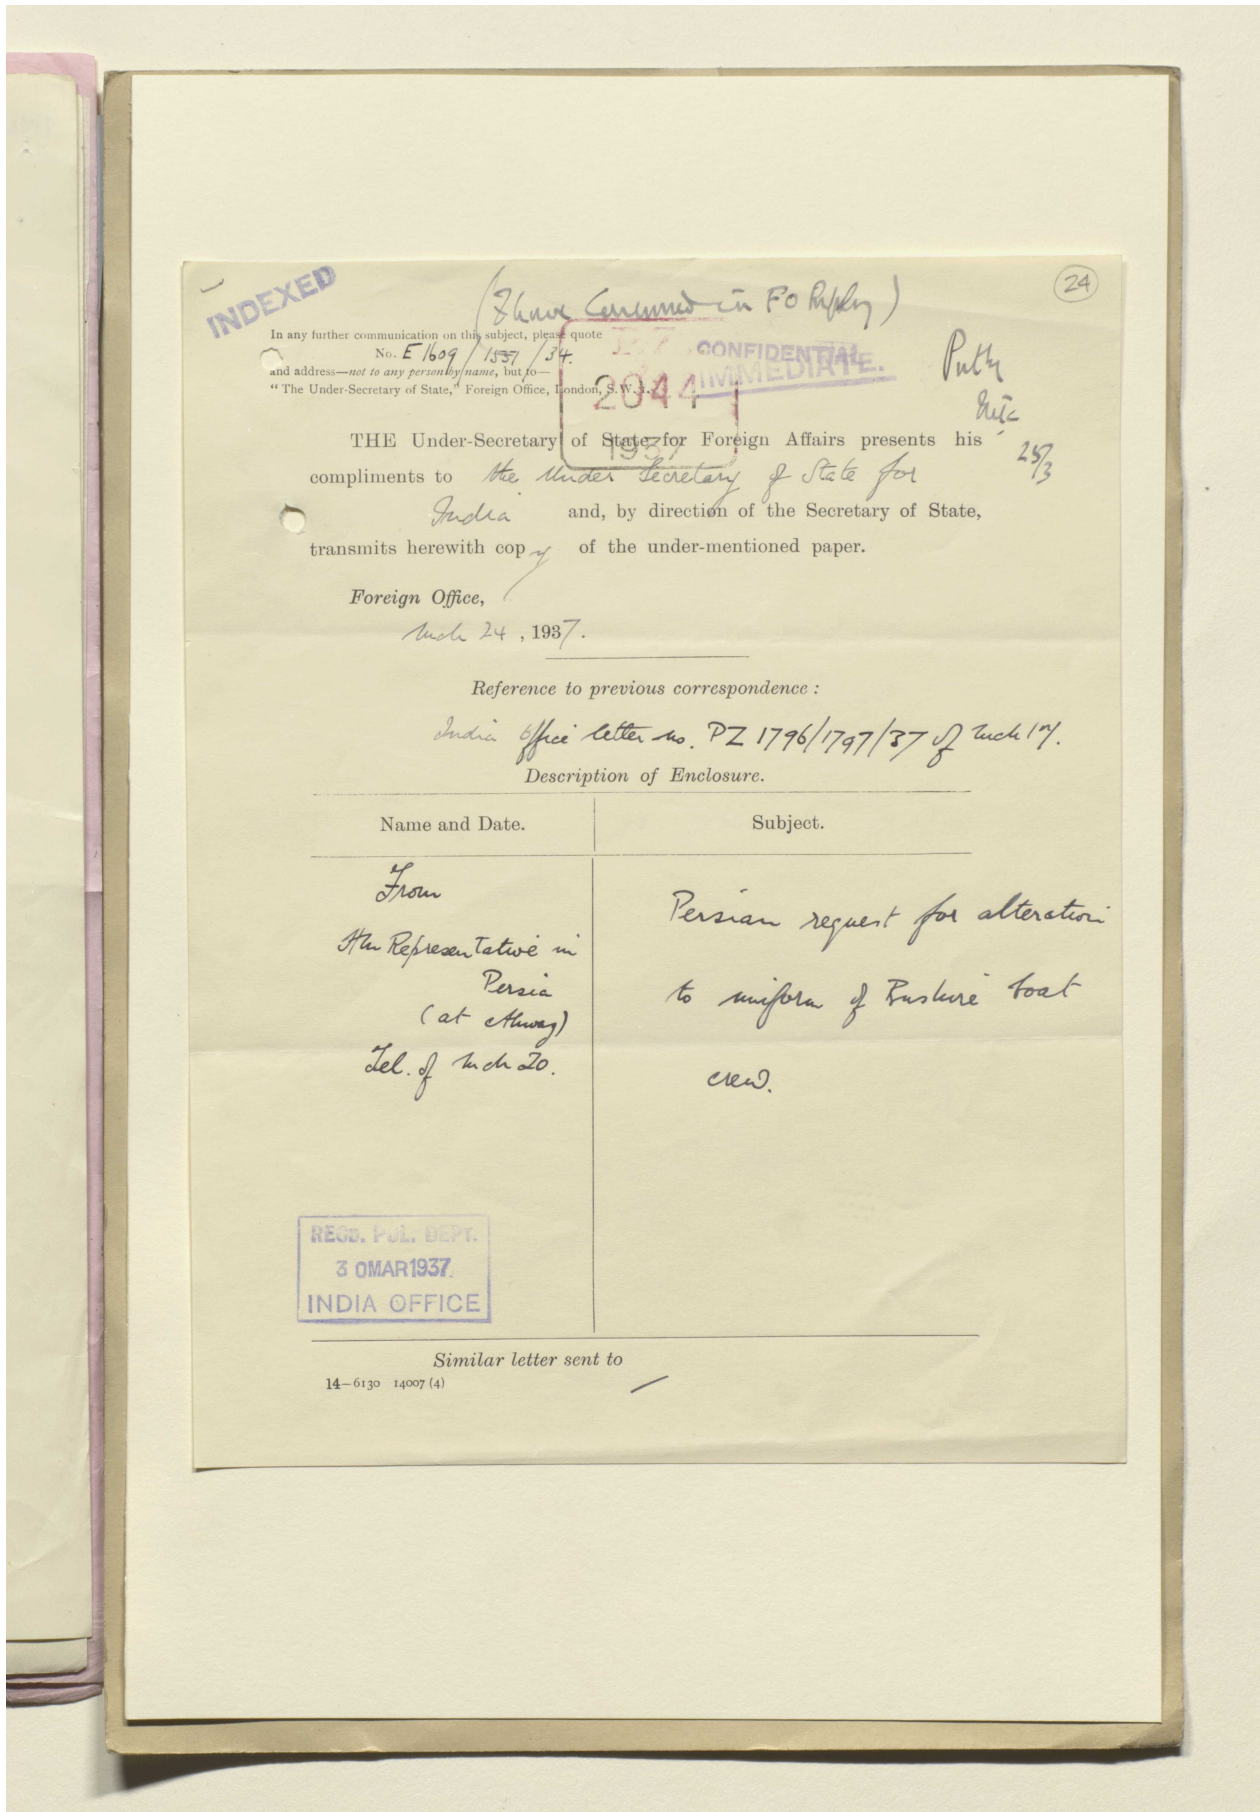 INDEXED
(I have concurred in FO Reply)
24
In any further communication on this subject, please quote
No. E 1609 / 1551 / 34.
and address—not to any person by name, but to—
"The Under-Secretary of State," Foreign Office, London, S.W.1.
P.Z.
2044
1937
CONFIDENTIAL
IMMEDIATE.
25/3
THE Under-Secretary of State for Foreign Affairs presents his
compliments to the Under Secretary of State for
India and, by direction of the Secretary of State,
transmits herewith copy of the under-mentioned paper.
Foreign Office,
Mch 24, 1937.
Reference to previous correspondence :
India Office letter no. PZ 1796/1797/37 of Mch
Description of Enclosure.
Name and Date.
Subject.
From
HM Representative in
Persia
(at Ahwaz)
Tel. of Mch 20.
Persian request for alteration
to uniform of Bushire boat
crew.
REGD. POL. DEPT.
30MAR1937.
INDIA OFFICE
Similar letter sent to
14—6130 14007 (4)